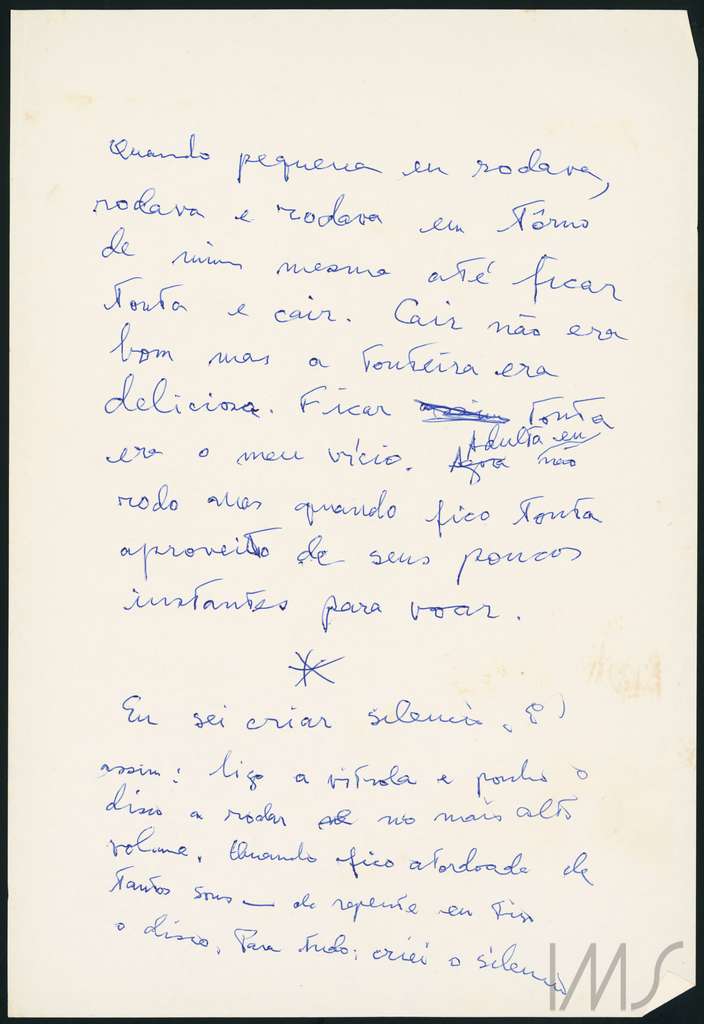 Quando pequena eu rodava,
rodava e rodava em tôrno
de mim mesma até ficar
tonta e cair. Cair não era
bom mas a tonteira era
deliciosa. Ficar assim tonta
era o meu vício. Agora Adulta eu não
rodo mas quando fico tonta
aproveito de seus poucos
instantes para voar.
*
Eu sei criar silencio. É
assim: ligo a vitrola e ponho o
disco a rodar no mais alto
volume. Quando fico atordoada de
tantos sons — de repente eu tiro
o disco. Para tudo: criei o silencio
IMS